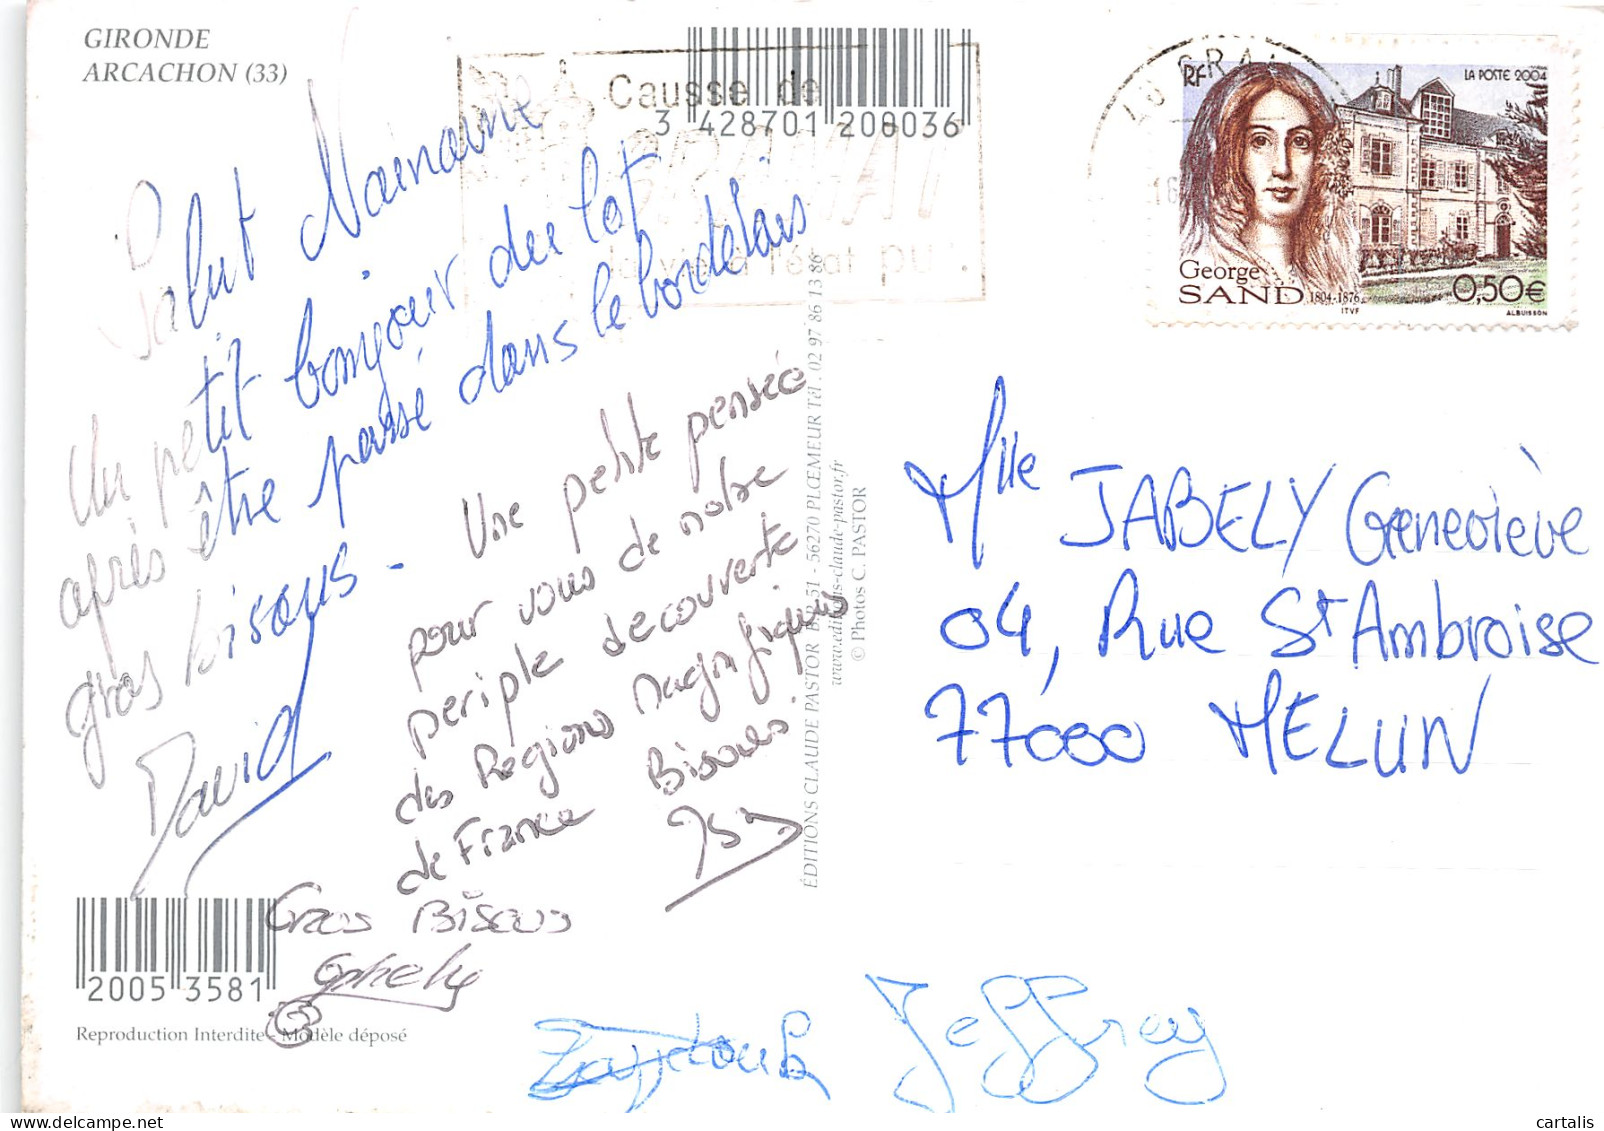 GIRONDE
ARCACHON (33)
3 428701 200036
Causse de
GRAMAT
la vie à l'état pur.
Salut Nainaine
Un petit bonjour du lot
après être passé dans le bordelais
gros bisous.
David
Une petite pensée
pour vous de notre
periple decouverte
des Regions magnifiques
de France Bisous
Gros Bisous
2005 3581
Reproduction Interdite - Modèle déposé
ÉDITIONS CLAUDE PASTOR B.P. 51 - 56270 PLŒMEUR Tél. 02 97 86 13 86
www.editions-claude-pastor.fr
© Photos C. PASTOR
RF
LA POSTE 2004
George
SAND 1804-1876
0,50€
ITVF
ALBUISSON
Mlle JABELY Geneviève
04, Rue St Ambroise
77000 MELUN
Jeffrey
cartalis